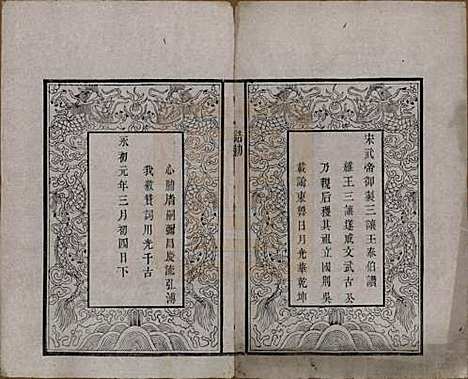 宋武帝御製三讓王泰伯讚
維王三讓遂成文武古公
乃親后稷其祖立國荆吳
載諭東魯日月光華乾坤
誥勅
心膽脩嗣彌昌慶流弘溥
我敷贊詞用光千古
永初元年三月初四日下